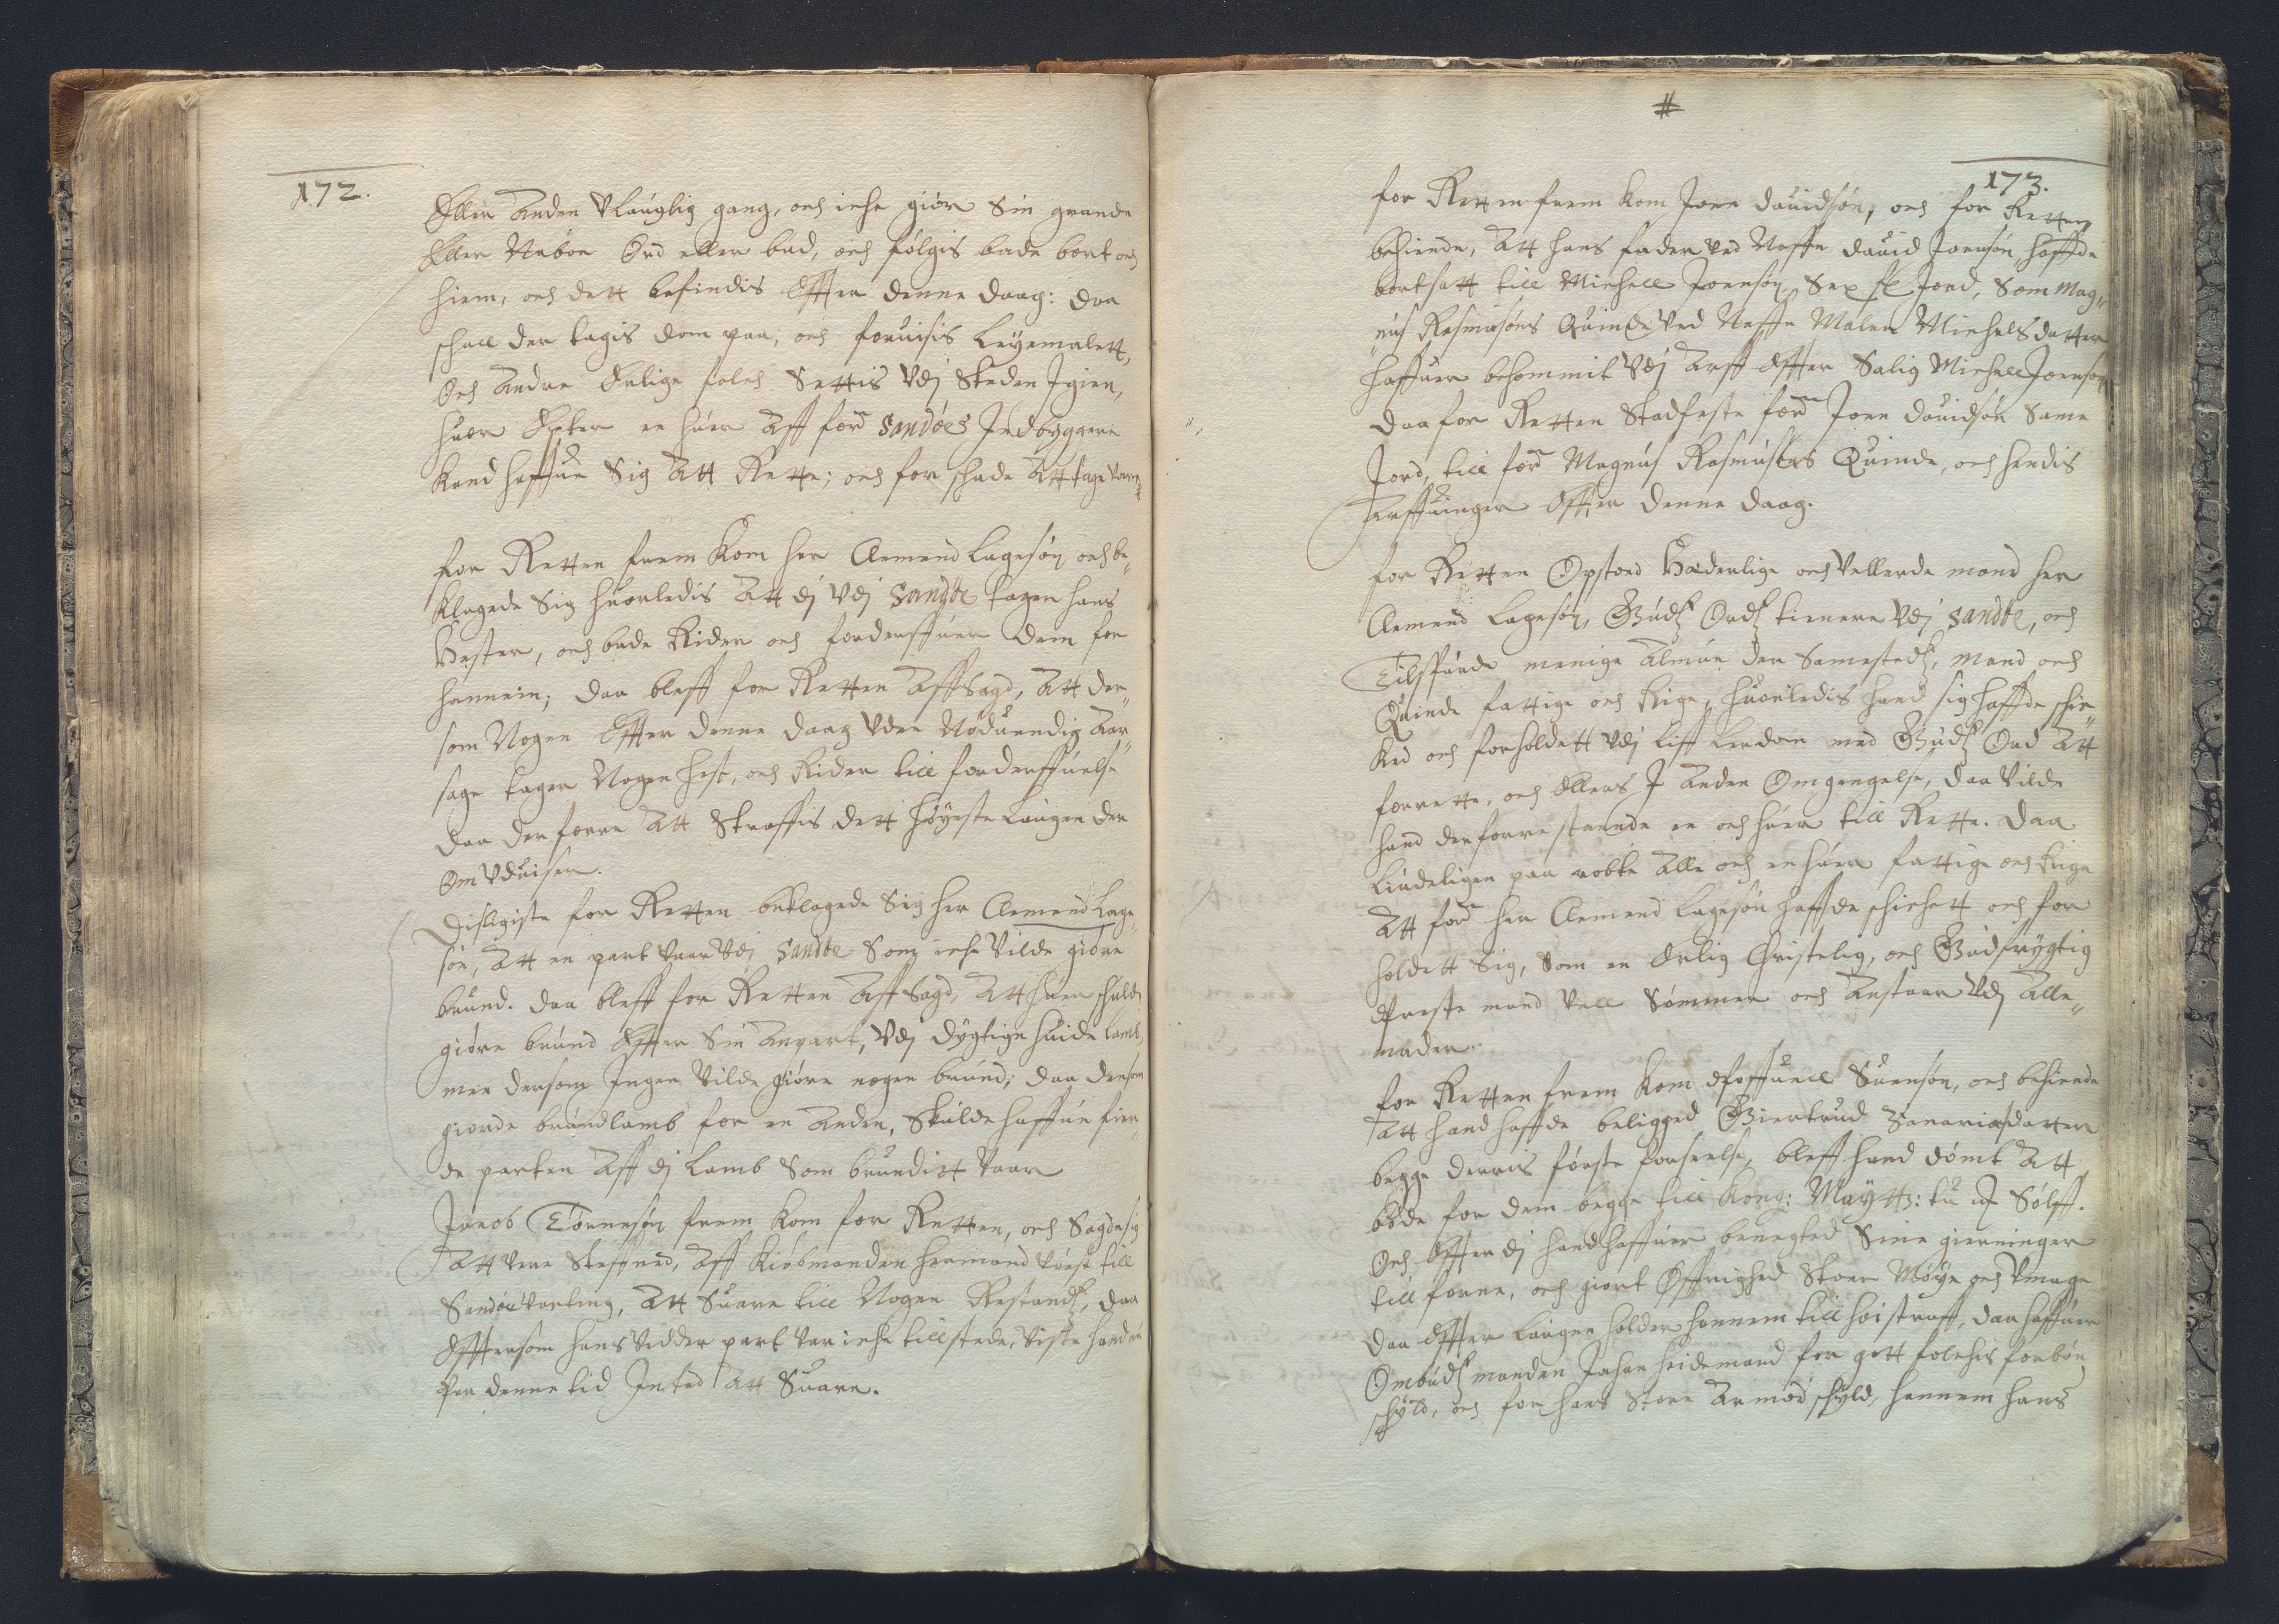 172.
Eller Anden Vlauglig gang, och iche giör Sin grande
Eller Naboe Ord eller bud, och fölgis bade bort och
hiem, och dett befindis Effter denne daag: daa
schall der tagis dom paa, och foruisis Leyemalett,
Och Andre Ærlige folch Settis Vdj Steden Igien,
huor Epter en huer Aff ford Sandöes Indbyggere
Kand haffue Sig Att Rette; och for schade Att tage vare
For Retten frem Kom her Clemend Lagesøn och be„
klagede Sig huorledis Att dj Vdj Sandöe tager hans
Hester, och bade Rider och forderffuer dem for
hannem; daa bleff for Retten Affsagd, Att der„
som Nogen Effter denne daag vden Nøduendig Aar„
sage tager Nogen hest, och Rider till forderffuelse
daa derforre Att Straffis dett höyeste Laugen der
Om Vduiser.
Disligiste for Retten beklagede Sig her Clemend Lage„
søn, Att en part vaar Vdj Sandöe Som iche Vilde giöre
brund. daa bleff for Retten Aff Sagd, Att huer schulde
giöre brund Effter Sin Anpart, Vdj dygtige huide Lamb,
men dersom Ingen Vilde giöre nogen brund; daa den som
giorde brundlamb for en Anden, Skulde haffue fier„
de parten Aff dj Lamb Som brunditt vaar
Jacob Tórnesøn frem Kom for Retten, och Sagde sig
Att vere Steffned, Aff Kiöbmanden Hermand till
Sandöe Varting, Att Suare till Nogen Restandz, daa
Effttersom hans Vedder part var iche tillstede, Viste hand
paa denne tid Inted Att Suare.
#
173.
for Retten frem kom Joen dauidsøn, och for Retten
bekiende, Att hans fader ved Naffn dauid Joensøn haffde
bortsatt till Michell Joensøn Sex sk Jord, Som Mag„
„nus Rasmusøns Quinde ved Naffn Malen Michelsdatter
haffuer bekommit Vdj Arff effter Salig Michell Joensøn
daa for Retten Stadfeste ford Joen dauidsøn Same
Jord, till ford Magnus Rasmusens Quinde, och hendis
Arffuinger Effter denne daag.
for Retten Opstoed Hæderlige och Vellerde mand her
Clemend Lagesøn, Gudz Ordz tienere Vdj Sandöe, och
Tilspurde menige Almue der Samestedz, mand och
Quinde fattige och Rige, huorledis hand sig haffde schic„
ked och forholdett Vdj Liff Lerdom med Gudz Ord Att
forrette, och Ellers I Anden Omgengelse, daa Vilde
hand derforre staande en och huer till Rette. daa
Liudeligen paa robte Alle och en huer fattige och Rige
Att ford her Clemend Lagesøn haffde schichett och for
holdett sig, Som en Ærlig Christelig, och Gudfrygtig
Preste mand vell Sømmer och Anstaar Vdj Alle„
mader.
for Retten frem kom Poffuell Suensøn, och bekiende
Att hand haffde beligged Giertrud Zacariasdatter
begge derris förste forseelse, bleff hand dömt Att
böde for dem begge till Kong: Maytt: tu Sølff.
Och Effter dj hand haffuer benegted Sine gierninger
till forne, och giort Øffrighed Stoer Møye och Vmage
daa Effter Laugen holder hannem till hoistraff, daa haffuer
Ombudzmanden Johan Heidemand for gott folchis forbøn
schyld, och for hans Store Armod schyld, hannem hans